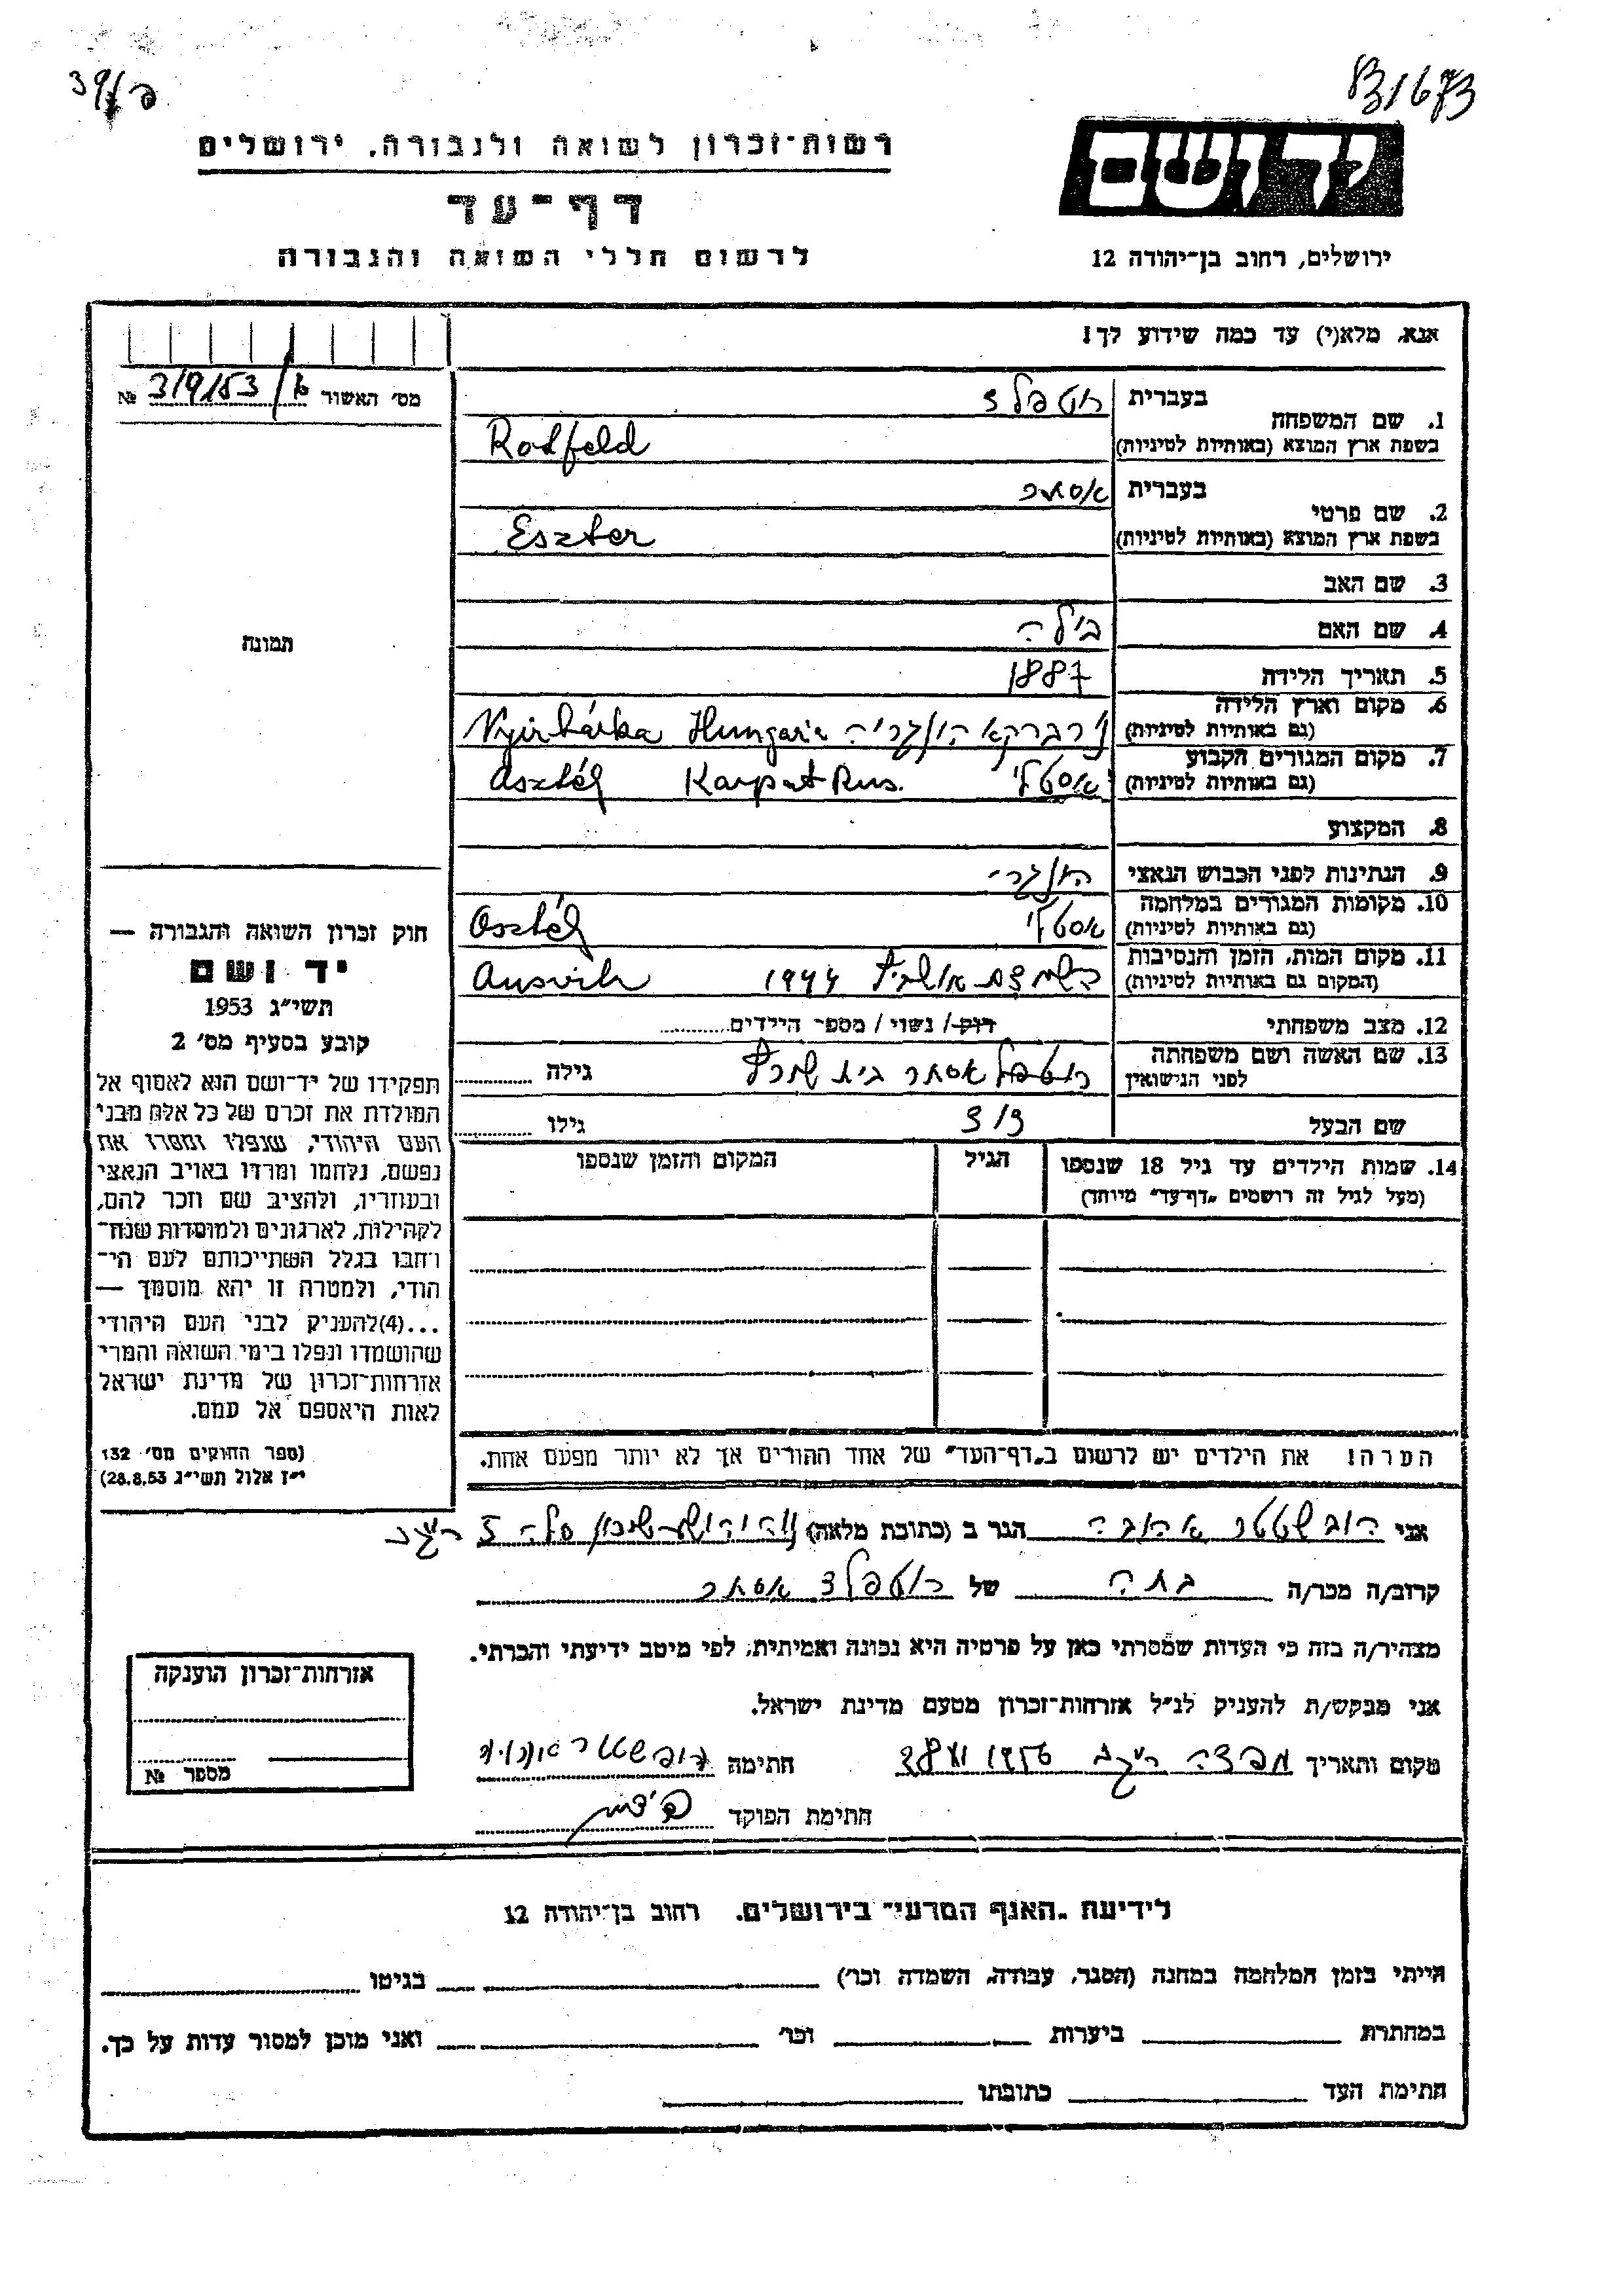 B1673
רשות־זכרון לשואה ולגבורה, ירושלים
דף־עד
לרשום חללי השואה והגבורה
יד ושם
ירושלים, רחוב בן־יהודה 12
אנא, מלא(י) עד כמה שידוע לך!
מס׳ האשור № 319153
1. שם המשפחה
בעברית רוטפלד
בשפת ארץ המוצא (באותיות לטיניות) Rotfeld
2. שם פרטי
בעברית אסתר
בשפת ארץ המוצא (באותיות לטיניות) Eszter
3. שם האב
4. שם האם בילה
5. תאריך הלידה 1887
6. מקום וארץ הלידה
(גם באותיות לטיניות) נירברקא הונגריה Nyirbárka Hungaria
7. מקום המגורים הקבוע
(גם באותיות לטיניות) אסטלי Karpat Rus. Osztély
8. המקצוע
9. הנתינות לפני הכבוש הנאצי הונגרי
10. מקומות המגורים במלחמה
(גם באותיות לטיניות) אסטלי Osztély
11. מקום המות, הזמן והנסיבות
(המקום גם באותיות לטיניות) 1944 Ausvih
12. מצב משפחתי רוק/ נשוי / מספר הילדים
13. שם האשה ושם משפחתה
לפני הנישואין רוטפלד אסתר בית גילה
שם הבעל דוד גילו
14. שמות הילדים עד גיל 18 שנספו
(מעל לגיל זה רושמים „דף־עד" מיוחד)
הגיל
המקום והזמן שנספו
הערה! את הילדים יש לרשום ב„דף־העד" של אחד ההורים אך לא יותר מפעם אחת.
תמונה
חוק זכרון השואה והגבורה —
יד ושם
תשי״ג 1953
קובע בסעיף מס׳ 2
תפקידו של יד־ושם הוא לאסוף אל
המולדת את זכרם של כל אלה מבני
העם היהודי, שנפלו ומסרו את
נפשם, נלחמו ומרדו באויב הנאצי
ובעוזריו, ולהציב שם וזכר להם,
לקהילות, לארגונים ולמוסדות שנח־
רבו בגלל השתייכותם לעם הי־
הודי, ולמטרה זו יהא מוסמך —
...(4)להעניק לבני העם היהודי
שהושמדו ונפלו בימי השואה והמרי
אזרחות־זכרון של מדינת ישראל
לאות היאספם אל עמם.
(ספר החוקים מס׳ 132
י״ז אלול תשי״ג 28.8.53)
אני רובשטטר אהובה הגר ב (כתובת מלאה)
קרוב/ה מכר/ה בתה של רוטפלד אסתר
מצהיר/ה בזה כי העדות שמסרתי כאן על פרטיה היא נכונה ואמיתית, לפי מיטב ידיעתי והכרתי.
אני מבקש/ת להעניק לנ״ל אזרחות־זכרון מטעם מדינת ישראל.
מקום ותאריך 1956 חתימה
חתימת הפוקד
אזרחות־זכרון הוענקה
מספר №
לידיעת „האגף המדעי" בירושלים. רחוב בן־יהודה 12
הייתי בזמן המלחמה במחנה (הסגר, עבודה, השמדה וכו׳) בגיטו
במחתרת ביערות וכו׳ ואני מוכן למסור עדות על כך.
חתימת העד כתובתו